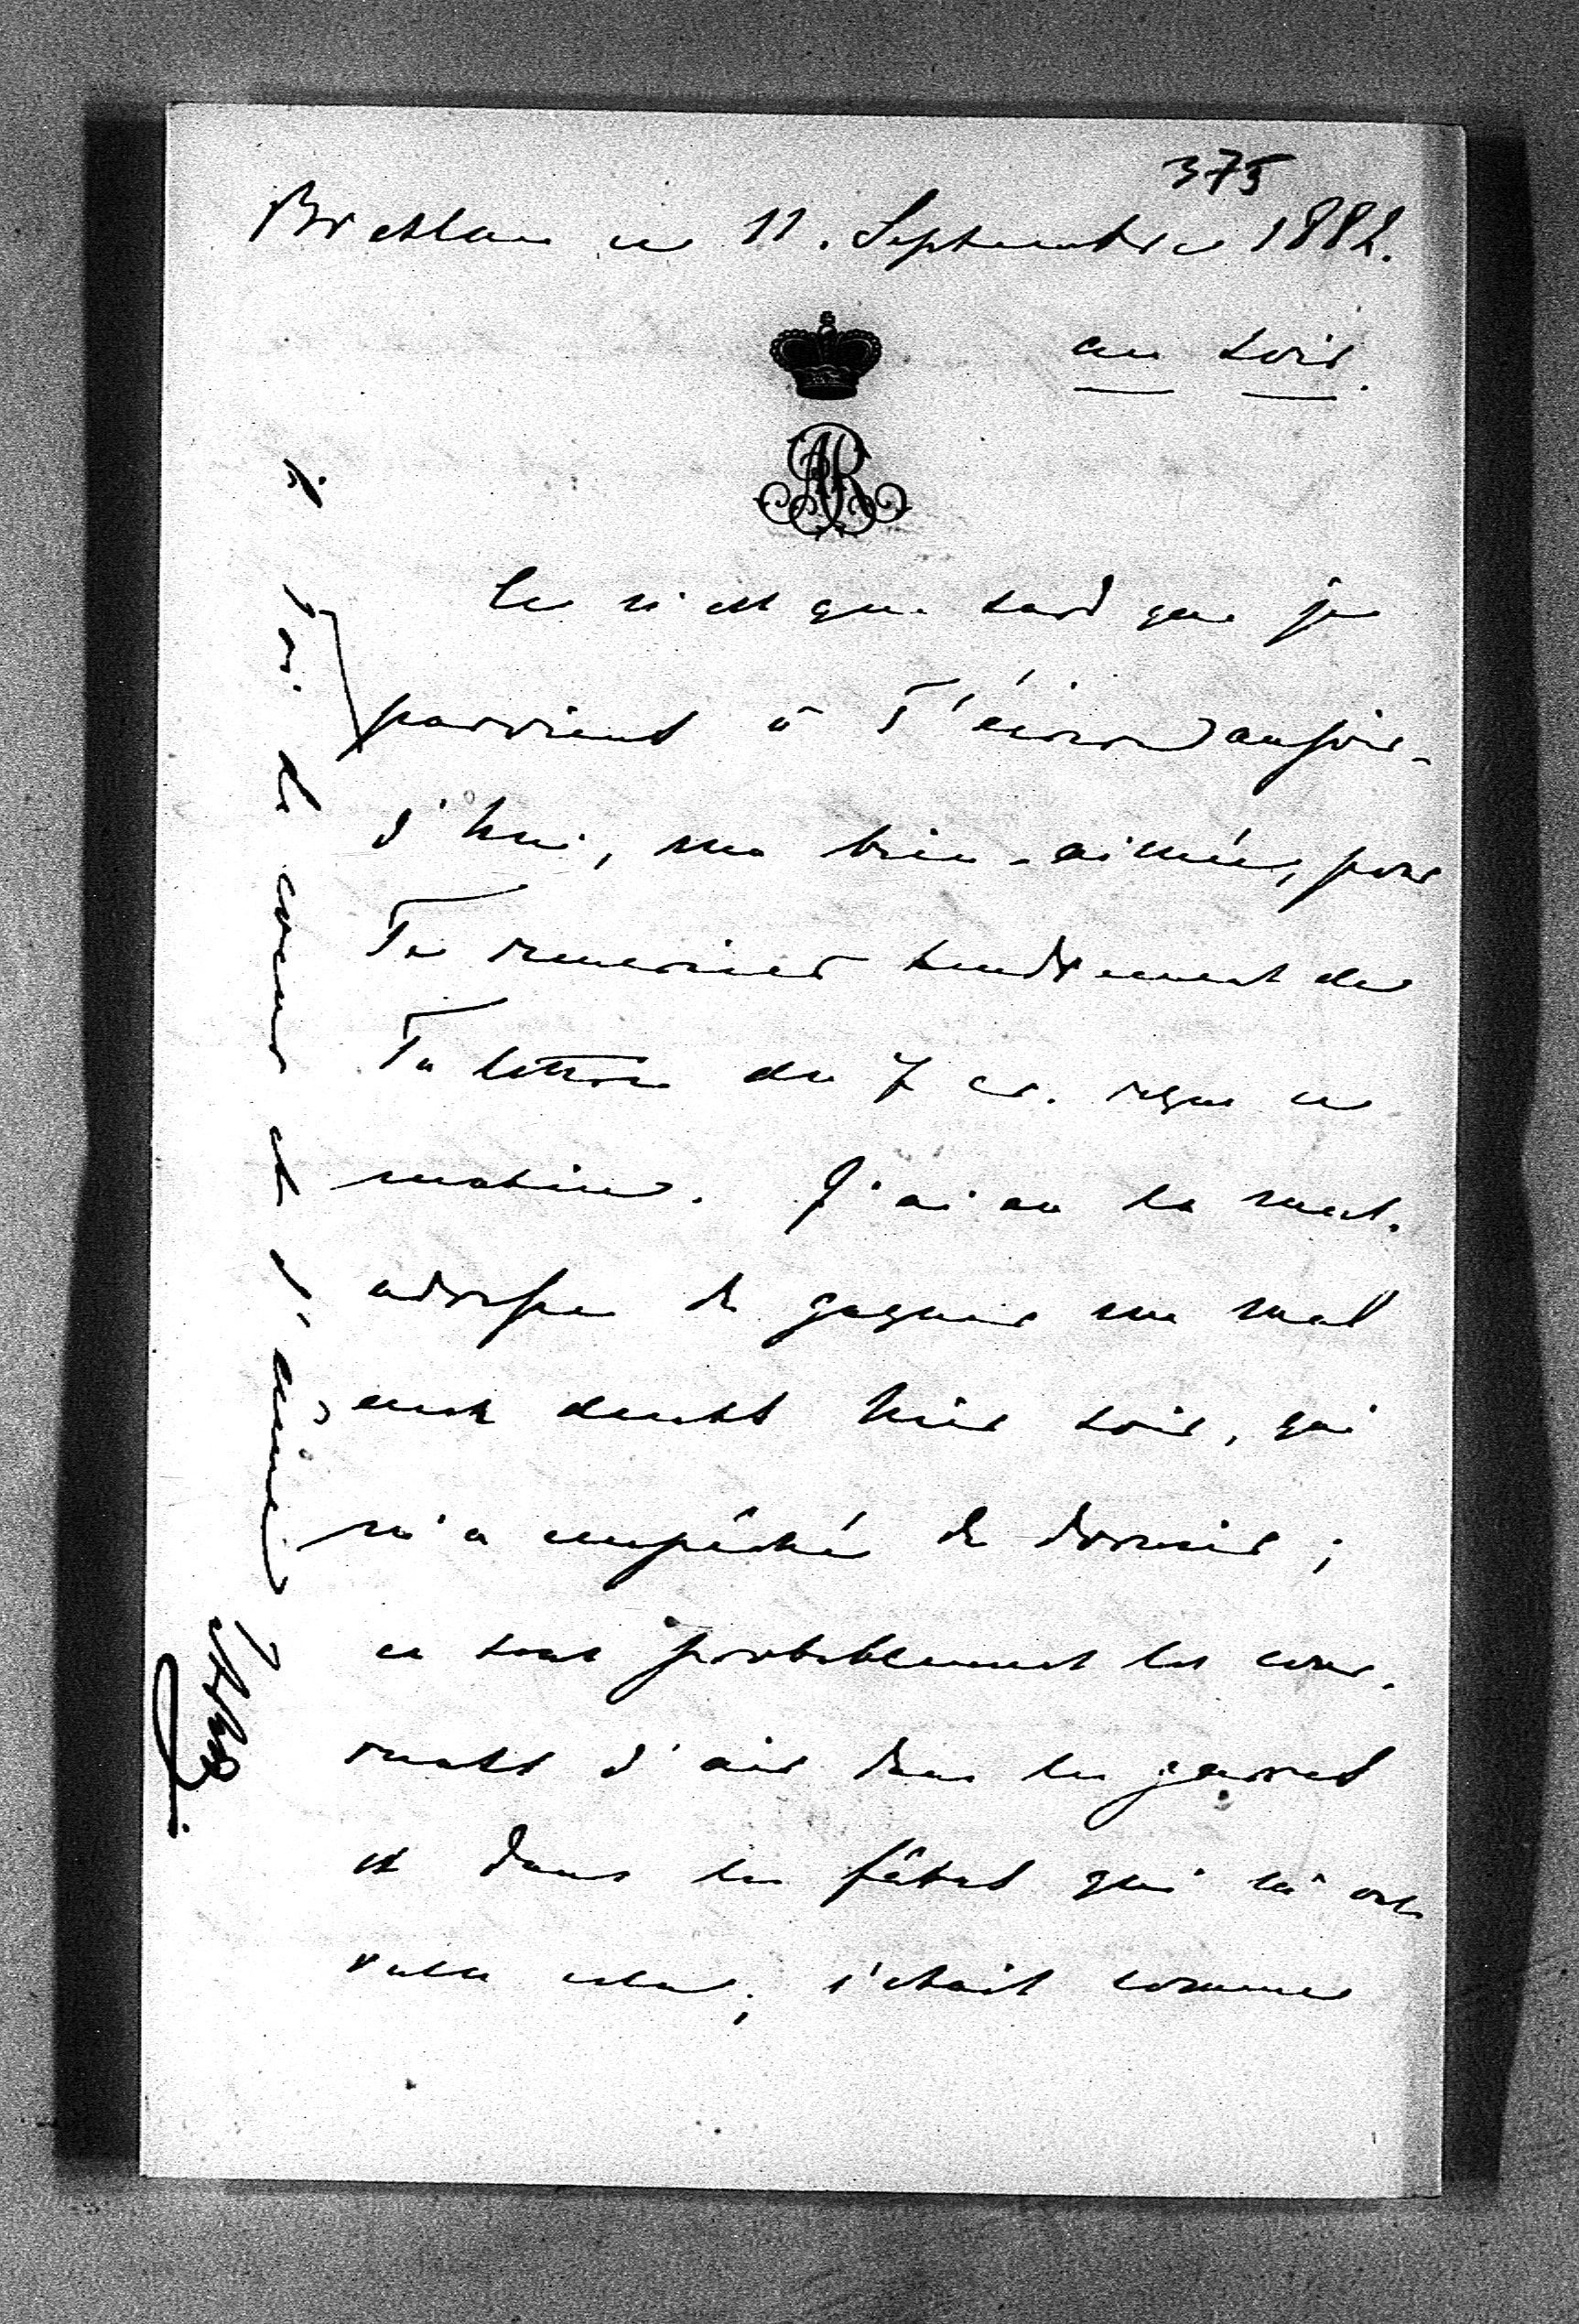 375
Breslau ce 11. Septembre 1882.
au soir.
AR
Ce n'est que tard que je
parviens à T'écrire aujour-
d'hui, ma bien-aimée, pour
Te remercier tendrement de
Ta lettre du 7 cr. reçue ce
matin. J'ai eu la mal-
adresse de gagner un mal
aux dents hier soir, qui
m'a empêché de dormir;
ce sont probablement les cou-
rants d'air dans les gares
et dans les fêtes qui m'ont
valu cela; c'était comme
à Toi de coeur et d'âme